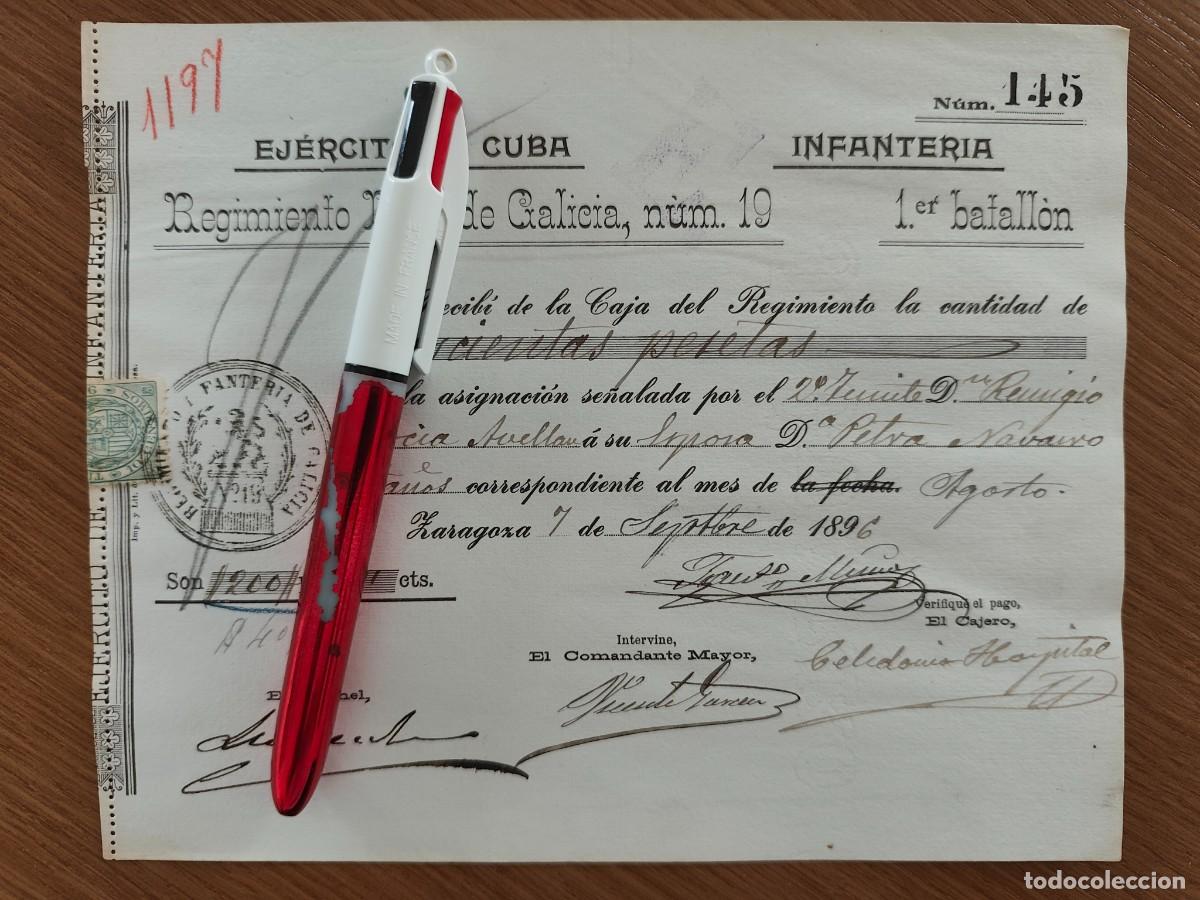 1197
Núm. 145
EJÉRCIT CUBA INFANTERIA
Regimiento de Galicia, núm. 19 1.er batallón
ecibí de la Caja del Regimiento la cantidad de
cientas pesetas
la asignación señalada por el 2º Tenite D. Remigio
cia Avellan á su Esposa D.ª Petra Navarro
correspondiente al mes de la fecha. Agosto.
Zaragoza 7 de Septbre de 1896
Son 200 cts.
Verifiqué el pago,
El Cajero,
Intervine,
El Comandante Mayor,
Celedonio Hospital
Vicente
E nel,
INFANTERIA DE GALICIA
EJÉRCITO DE INFANTERIA
Imp. y Lit.
MADE IN FRANCE
todocoleccion